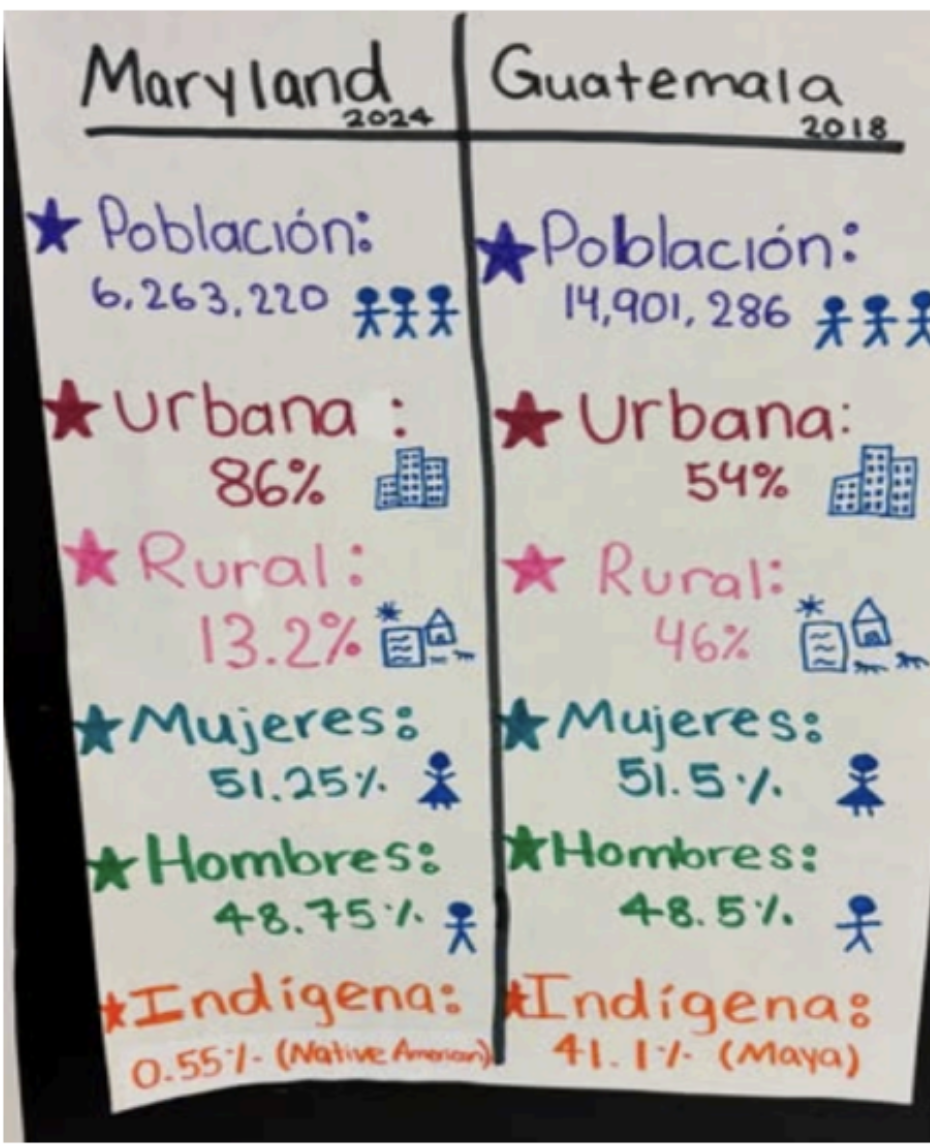 Maryland
2024
Población:
6,263,220
Urbana :
86%
Rural:
13.2%
Mujeres:
51.25%
Hombres:
48.75%
Indígena:
0.55% (Native American)
Guatemala
2018
Población:
14,901,286
Urbana:
54%
Rural:
46%
Mujeres:
51.5%
Hombres:
48.5%
Indígena:
41.1% (Maya)